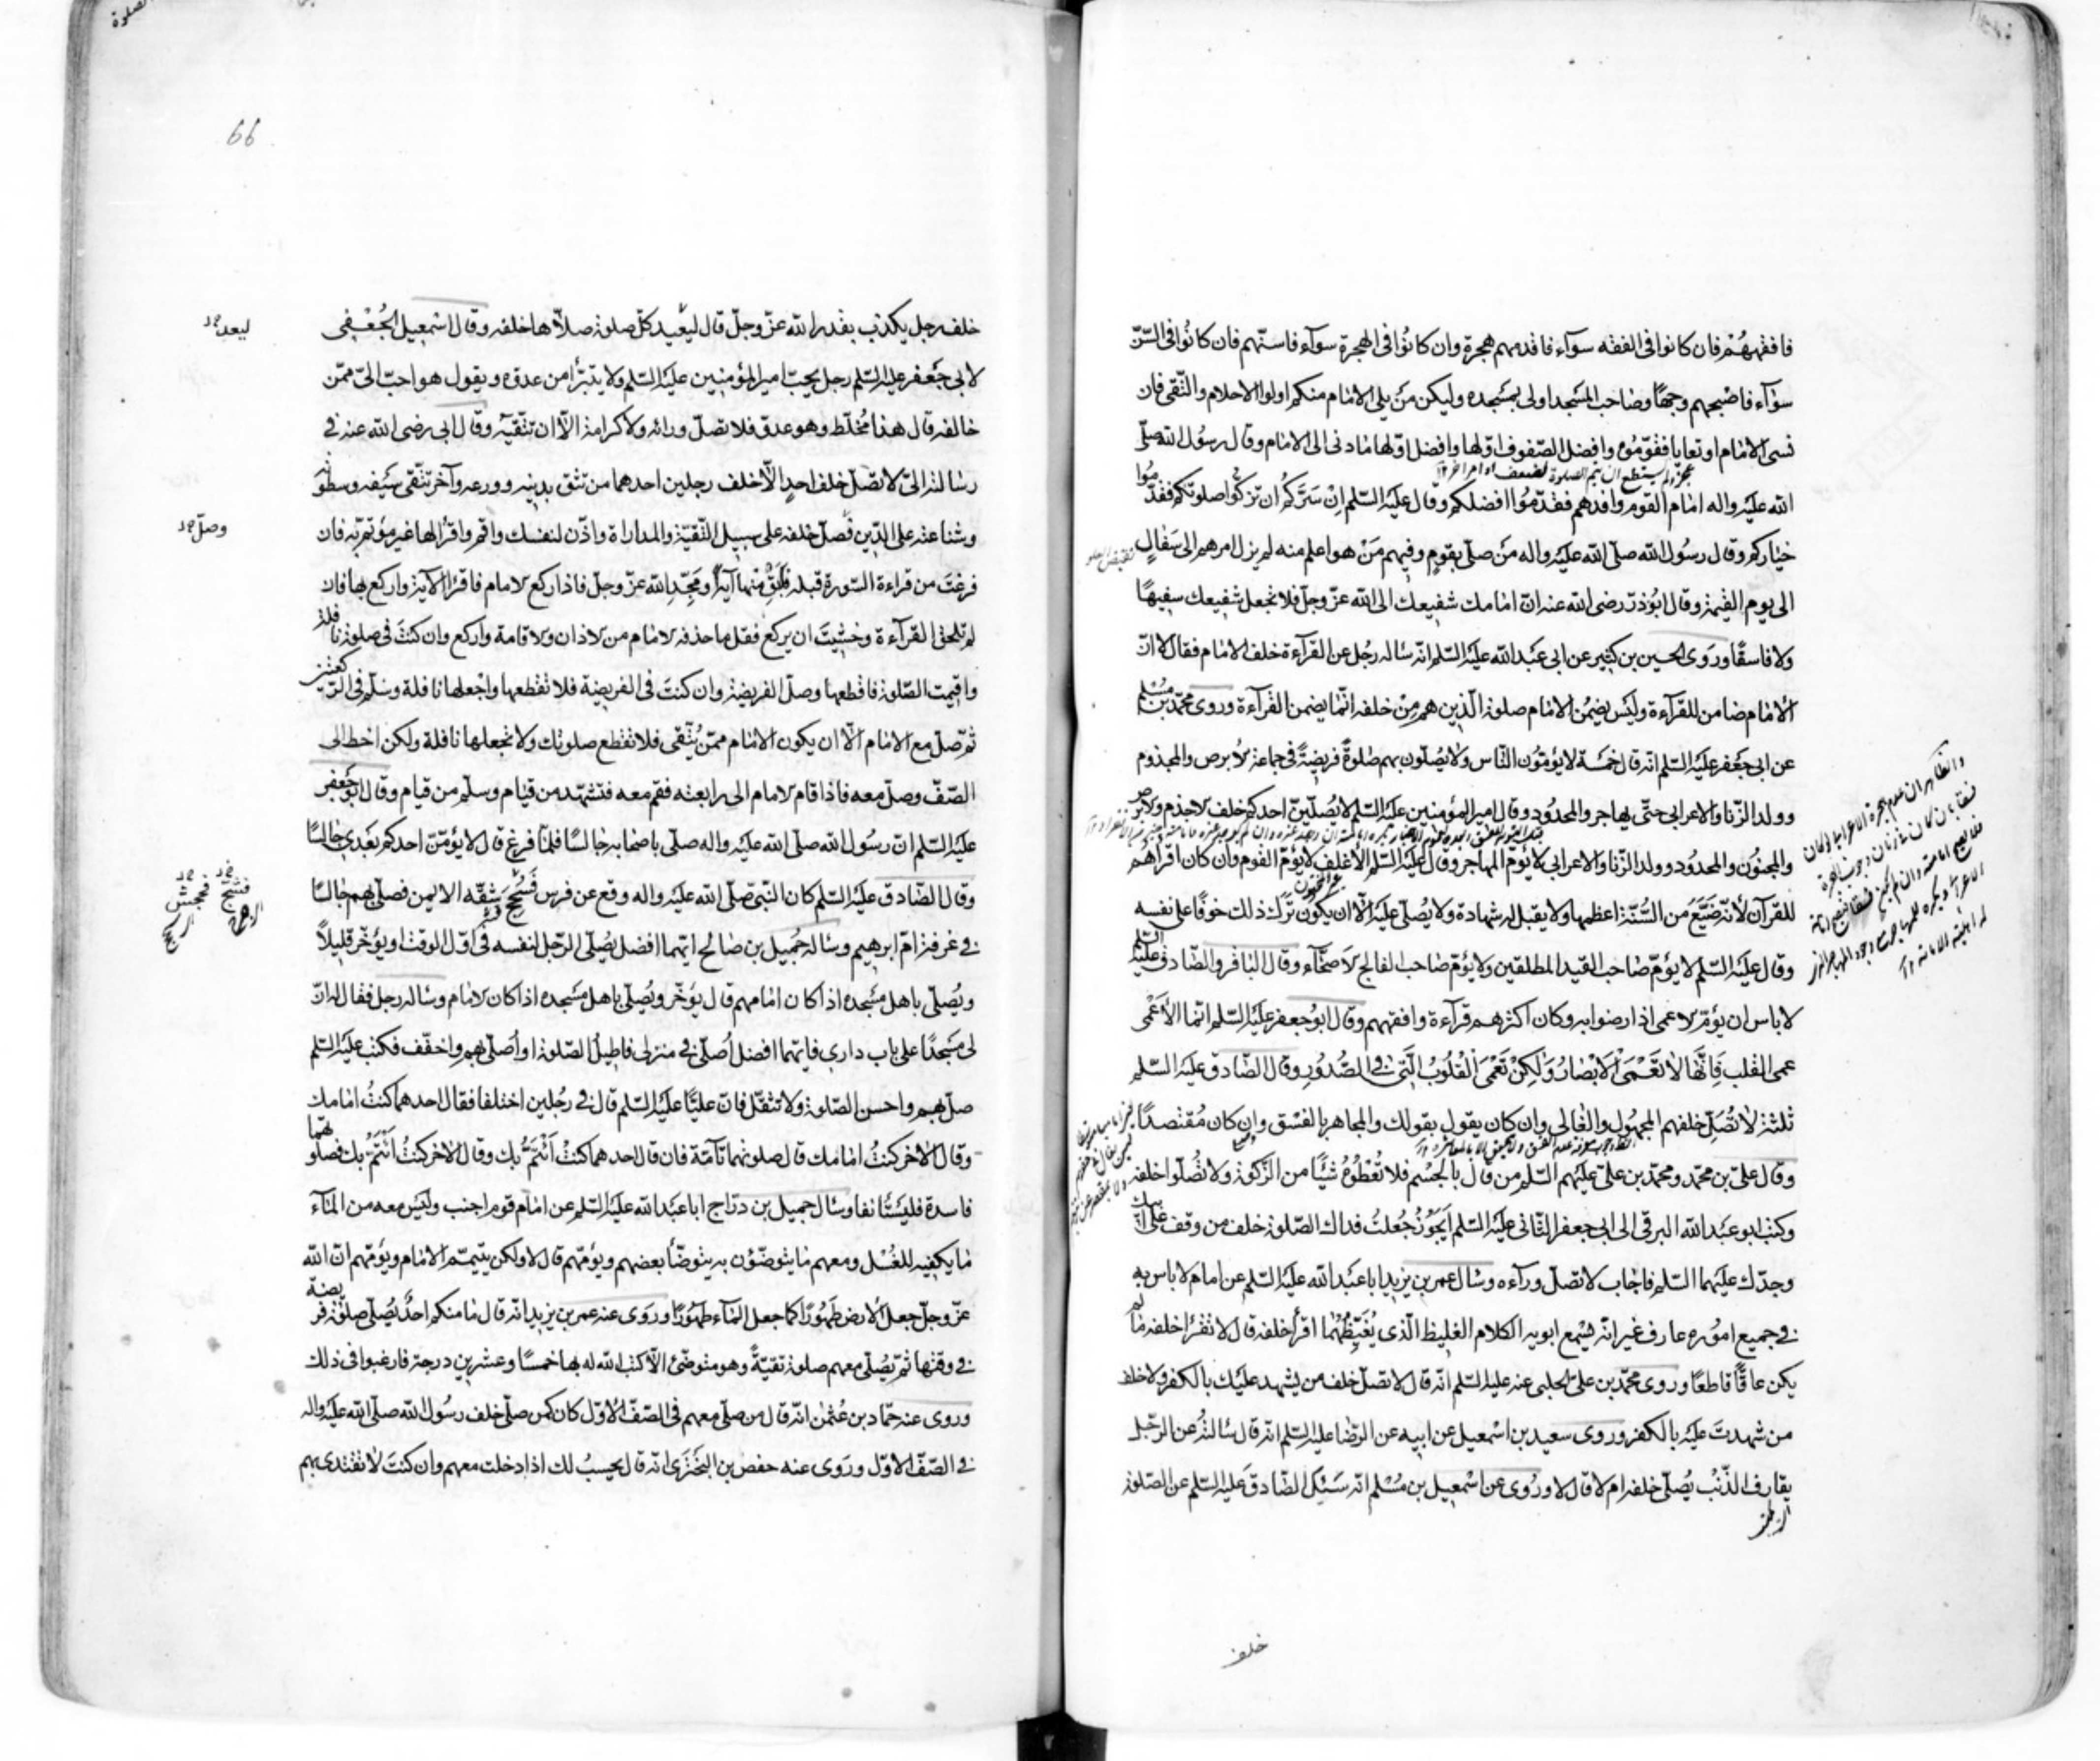 فافقههُمْ فان كانوا فى الفقه سوآء فاقدمهم هجرة وان كانُوا فى الهجرة سوآء فاسنّهم فان كانُوا فى السّنّ
سوآء فاصبحهم وجهًا وصاحب المسَجد اولى بمسَجده وليكن منْ يلى الامَام منكم اولوا الاحلام والتّقى فان
نسى الامَام او تعايا فقوّمُوه وافضل الصّفوف اوّلها وافضل اوّلها مَا دنى الى الامَام وقال رسوُل الله صلّى
الله عليَه واله امَام القوم وافدهم فقدّموُا افضلكم وقال عليَه السّلم اِنْ سَرَّكُم ان تزكّوا صلوتكم فقدّموُا
خيَاركم وقال رسوُل الله صلّى الله عليَه واله مَن صلّى بقومٍ وفيهم مَنْ هو اعلم منه لم يزل امرهم الى سَفَالٍ
الى يوم القيٰمة وقال ابُوذرّ رضى الله عنه انّ امَامك شفيعك الى الله عزّ وجلّ فلا تجعل شفيعك سفيهًا
ولا فاسقًا ورَوى الحسين بن كثير عن ابى عَبد الله عليَه السّلم انّه سَاله رجُل عن القرآءة خلف الامَام فقال لا انّ
الامَام ضامن للقرآءة وليَس يضمُن الامَام صلوة الّذين هم مِنْ خلفه انّما يضمن القرآءة وروى محمّد بن مُسْلم
عن ابى جَعفر عليَه السّلم انّه قال خمسَة لا يؤمّون النّاس ولا يُصلّون بهم صَلوةً فريضةً فى جماعة الابرص والمجذوم
وولد الزّنا والاعرابى حتّى يهاجر والمحدُود وقال امير المؤمنين عليَه السّلم لا يُصلّينّ احدكم خلف الاجذم والابرص
والمجنُون والمحدُود وولد الزّنا والاعرابى لا يؤمّ المهاجر وقال عليَه السّلم الاغلف لا يؤمّ القوم وان كان اقرأهُم
للقرآن لانّه ضيَّعَ من السُّنّة اعظمها ولا يقبل له شهادة ولا يُصلّى عليَه الّا ان يكوُن تَرَك ذلك خوفًا على نفسه
وقال عليَه السّلم لا يؤمّ صاحب القيد المطلقين ولا يؤمّ صَاحب الفالج الاصحّآء وقال البَاقر والصّادق عليهما السّلم
لا باس ان يؤمّ الاعمى اذا رضوا به وكان اكثرهم قرآءة وافقههم وقال ابوُجعفر عليَه السّلم انّما الأعْمٰى
عمى القلب فَاِنَّهَا لا تَعْمَى الْاَبْصَارُ وَلٰكِنْ تَعْمَى الْقُلُوبُ الَّتِى فِى الصُّدُورِ وقال الصَّادق عليَه السّلم
ثلثة لا تُصَلِّ خلفهم المجهُول والغَالى وان كان يقول بقولك والمجاهر بالفسْق وان كان مُقتصدًا
وقال علىّ بن محمّد ومحمّد بن علىّ عليَهم السّلم من قال بالجِسْم فلا تُعْطُوهُ شيْئًا من الزّكوة ولا تُصلّوا خلفه
وكتب ابو عبَد الله البرقى الى ابى جعفر الثّانى عليَه السّلم اَيَجُوْزُ جُعلتُ فداك الصّلوة خلف من وقف على ابيك
وجدّك عليَهما السّلم فاجَاب لا تصلّ ورآءه وسَال عمر بن يزيد ابا عبَد الله عليَه السّلم عن امام لا باس به
فى جميع امُوره عارف غير انّه يسْمع ابويه الكلام الغليظ الّذى يُغيّظُهُمَا اقرأ خلفه قال لا تقرأ خلفه مَا لم
يكن عاقًّا قاطعًا وروى محمّد بن علىّ الحلبى عنه عليَه السّلم انّه قال لا تصلّ خلف من يشهد عليَك بالكفر ولا خلف
من شهدتَ عليَه بالكفر وروى سعيد بن اسْمعيل عن ابيه عن الرّضَا عليَه السّلم انّه قال سَالتُهُ عن الرّجُل
يقارف الذّنْب يُصلّى خلفه ام لا قال لا وروُى عن اسْمعيل بن مُسْلم انّه سَئل الصّادق عَليَه السّلم عن الصّلوة
خلف
66
خلف رجل يكذب بقدر الله عزّ وجلّ قال ليُعيد كلّ صلوة صلّاها خلفه وقال اسْمعيل الجُعْفى
ليعد
لابى جَعفر عليَه السّلم رجل يحبّ امير المؤمنين عليَه السّلم ولا يتبرّأ من عدوّه ويقول هو احبّ الىّ ممّن
خالفه قال هذا مُخلّط وهو عدوّ فلا تصلّ ورائه ولا كرامة الّا ان تتّقيَه وقال ابى رضى الله عنه فى
رسَالته الىّ لا تصَلّ خلف احدٍ الّا خلف رجلين احدهما من تثق بدينه وورعه وآخر تتّقى سَيفه وسطوته
وشناعته على الدّين فصَلّ خلفه على سبيل التّقيّة والمداراة واذّن لنفسك واقم واقرأ لها غير مؤتمّ به فان
وصلّ
فرغتَ من قراءة السّورة قبله فابْقِ منها آيةً ومَجّدِ الله عزّ وجلّ فاذا ركع الامام فاقرأ الآية واركع بها فان
لم تلحق القرآءة وخشيتَ ان يركع فقل مَا حذفه الامَام من الاذان والاقامة واركع وان كنتَ فى صلوة نافلة
واقيمت الصّلوة فاقطعها وصلّ الفريضة وان كنتَ فى الفريضة فلا تقطعها واجْعلها نافلة وسَلّم فى الرّكعتين
ثمّ صلّ مع الامَام الّا ان يكون الامَام ممّن يُتّقى فلا تقطع صلوتك ولا تجعلها نافلة ولكن اخط الى
الصّفّ وصلّ معه فاذا قام الامام الى رابعته فقم معه فتشهّد من قيام وسلّم من قيام وقال ابوُجَعفر
عليَه السّلم انّ رسوُل الله صلّى الله عليَه واله صلّى باصحَابه جَالسًا فلمّا فرغ قال لا يؤمّنّ احدكم بَعْدى جَالسًا
وقال الصَّادق عليَه السّلم كان النّبىّ صَلّى الله عليَه واله وقع عن فرس فشجّ شِقّه الايمن فصلّى بهم جَالسًا
فى غرفة امّ ابرهيم وسَاله جَميل بن صَالح ايّهما افضل يُصلّى الرّجل لنفسه فى اوّل الوقت او يؤخّر قليلًا
ويُصلّى باهل مسَجده اذا كان امَامهم قال يُؤخّر ويُصلّى باهل مسَجده اذا كان الامَام وسَاله رجل فقال له انّ
لى مسَجدًا على باب دارى فايّهما افضل اُصلّى فى منزلى فاطيلُ الصّلوة او اُصلّى بهم واخفّف فكتب عليَه السّلم
صلّ بهم واحسن الصّلوة ولا تثقّل فانّ عليًّا عليَه السّلم قال فى رجُلين اختلفا فقال احدهما كنتُ امَامك
وقال الاخر كنتُ امَامك قال صلوتهما تآمّة فان قال احدهما كنتُ اَئْتَمُّ بك وقال الاخر كنتُ اَئْتَمُّ بك فصلوتهما
فاسدة فليَستَانفا وسَال جميل بن درّاج ابا عبَد الله عليَه السّلم عن امَام قوم اجنب وليَس معه من المَآء
مَا يكفيه للغُسْل ومعهم مَا يتوضّؤن به يتوضّأ بعضهم ويؤمّهم قال لا ولكن يتيمّم الامَام ويؤمّهم انّ الله
عزّ وجلّ جعل الارض طَهُورًا كما جعل المَآء طهُورًا وروَى عنه عمر بن يزيد انّه قال مَا منكم احدٌ يُصلّى صلوٰة فريضة
فى وقتها ثمّ يُصلّى معهم صلوة تقيّةً وهو متوضّئ الّا كتب الله له بها خمسًا وعشرين درجة فارغبوا فى ذلك
وروى عنه حمّاد بن عثمٰن انّه قال من صلّى معهم فى الصّفّ الاوّل كان كمن صلّى خلف رسوُل الله صلّى الله عليَه واله
فى الصّفّ الاوّل وروَى عنه حفص بن البختَرى انّه قال يحسبُ لك اذا دخلت معهم وان كنتَ لا تقتدى بهم